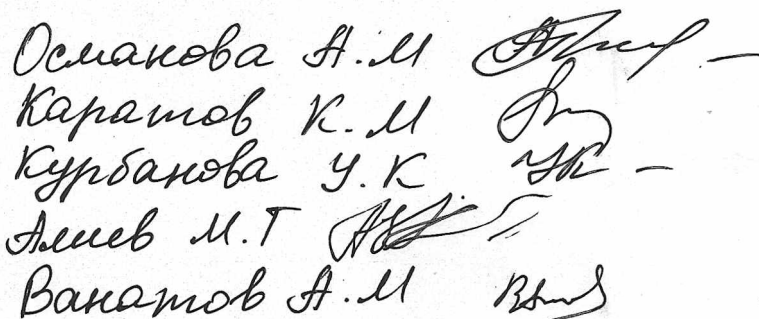 Османова А.М
Каратов К.М
Курбанова У.К
Алиев М.Т
Ванатов А.М